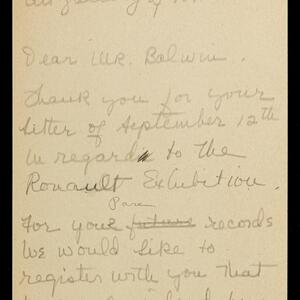 Dear Mr. Balwin.
Thank you for your
letter of September 12th
in regard to the
Rouault Exhibition.
Pare
For your future records
We would like to
register with you that